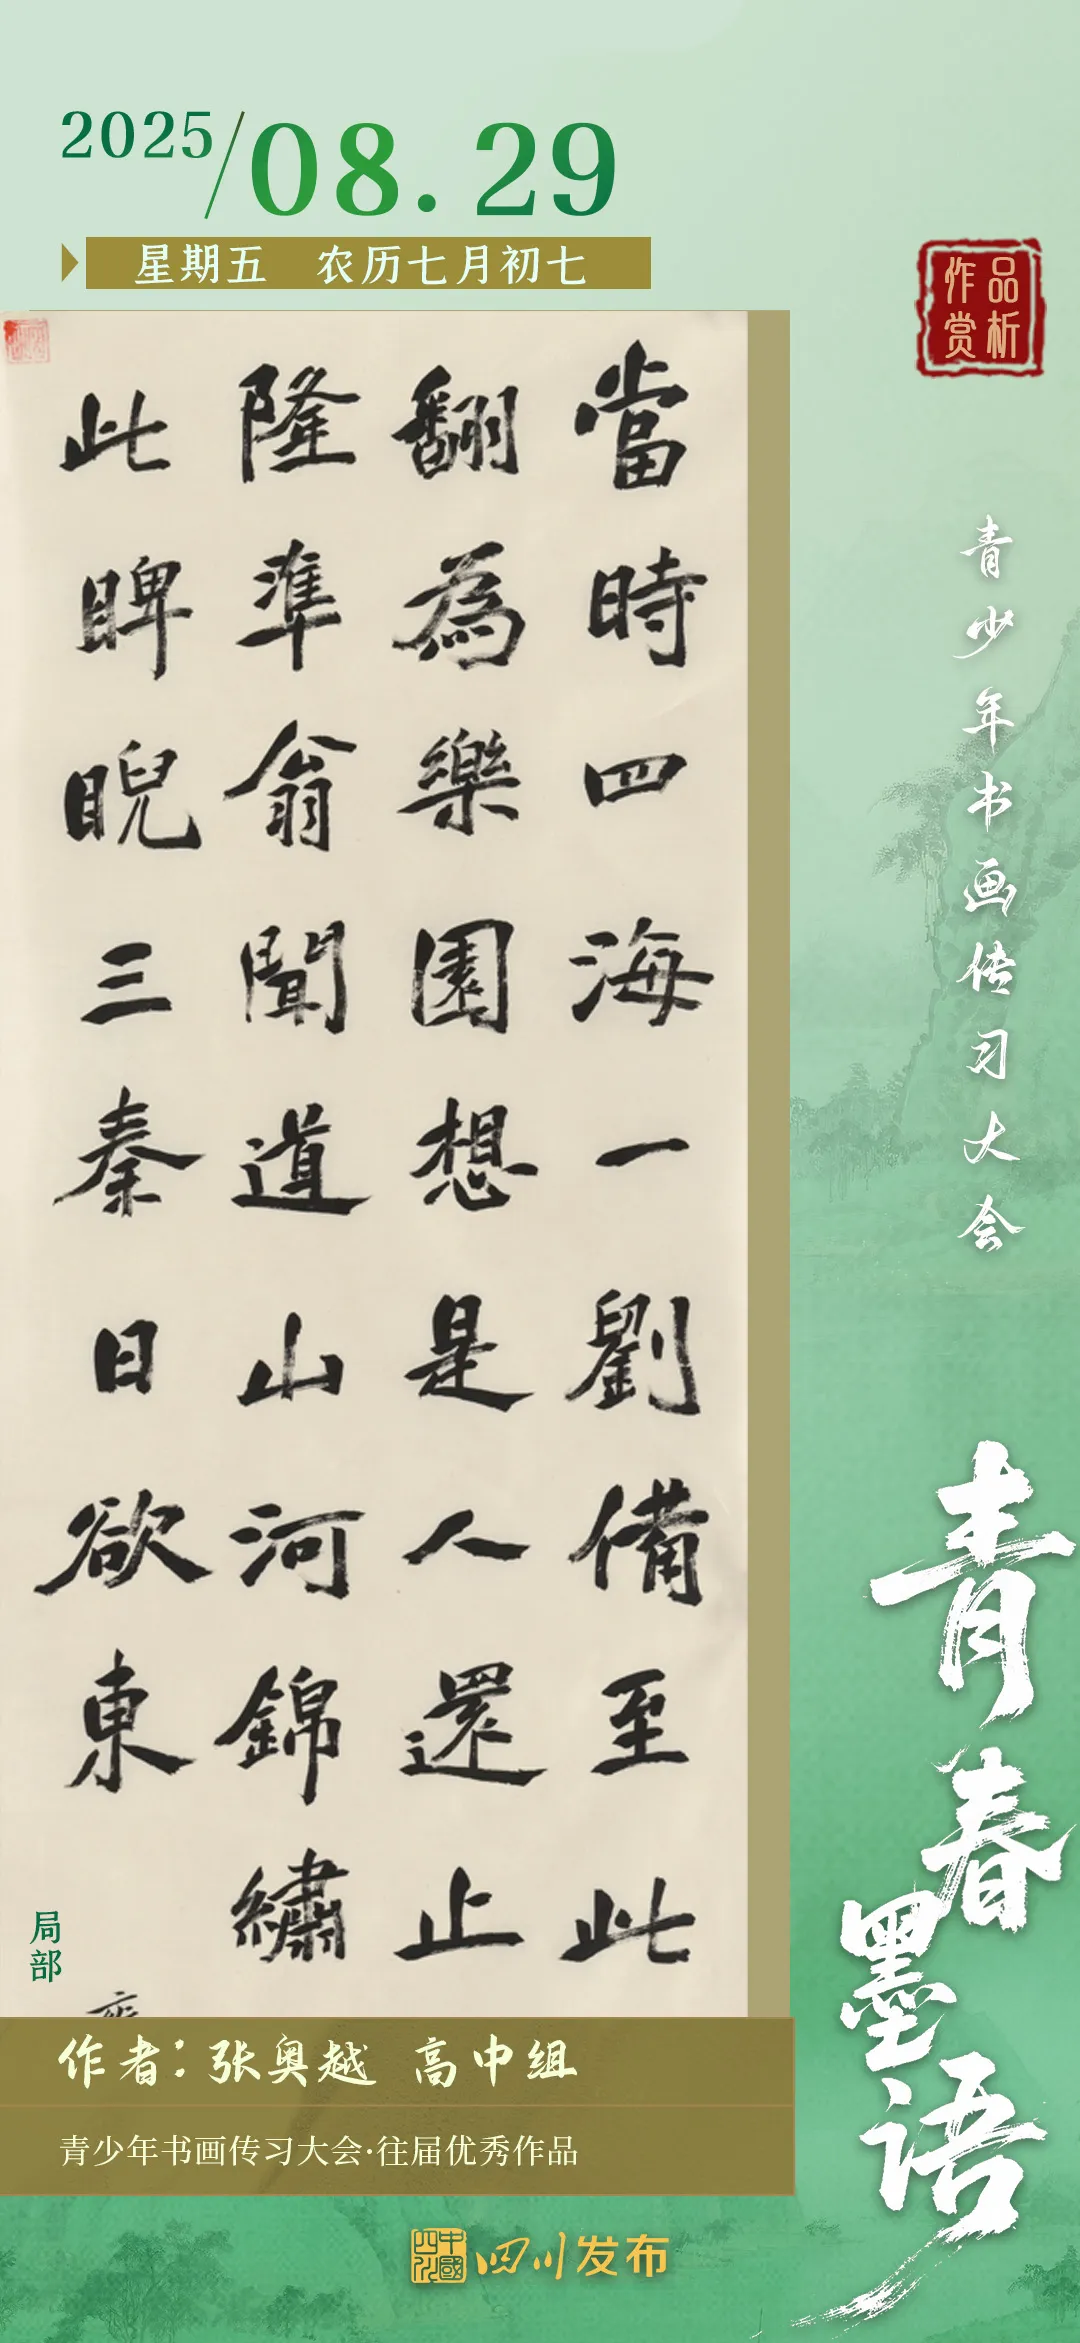 2025/08.29
星期五 农历七月初七
作品
赏析
當時四海一劉備至此
翻為樂園想是人還止
隆準翁聞道山河錦繡
此睥睨三秦日欲東
局部
青少年书画传习大会
青春墨语
作者：张奥越 高中组
青少年书画传习大会·往届优秀作品
中國四川
四川发布